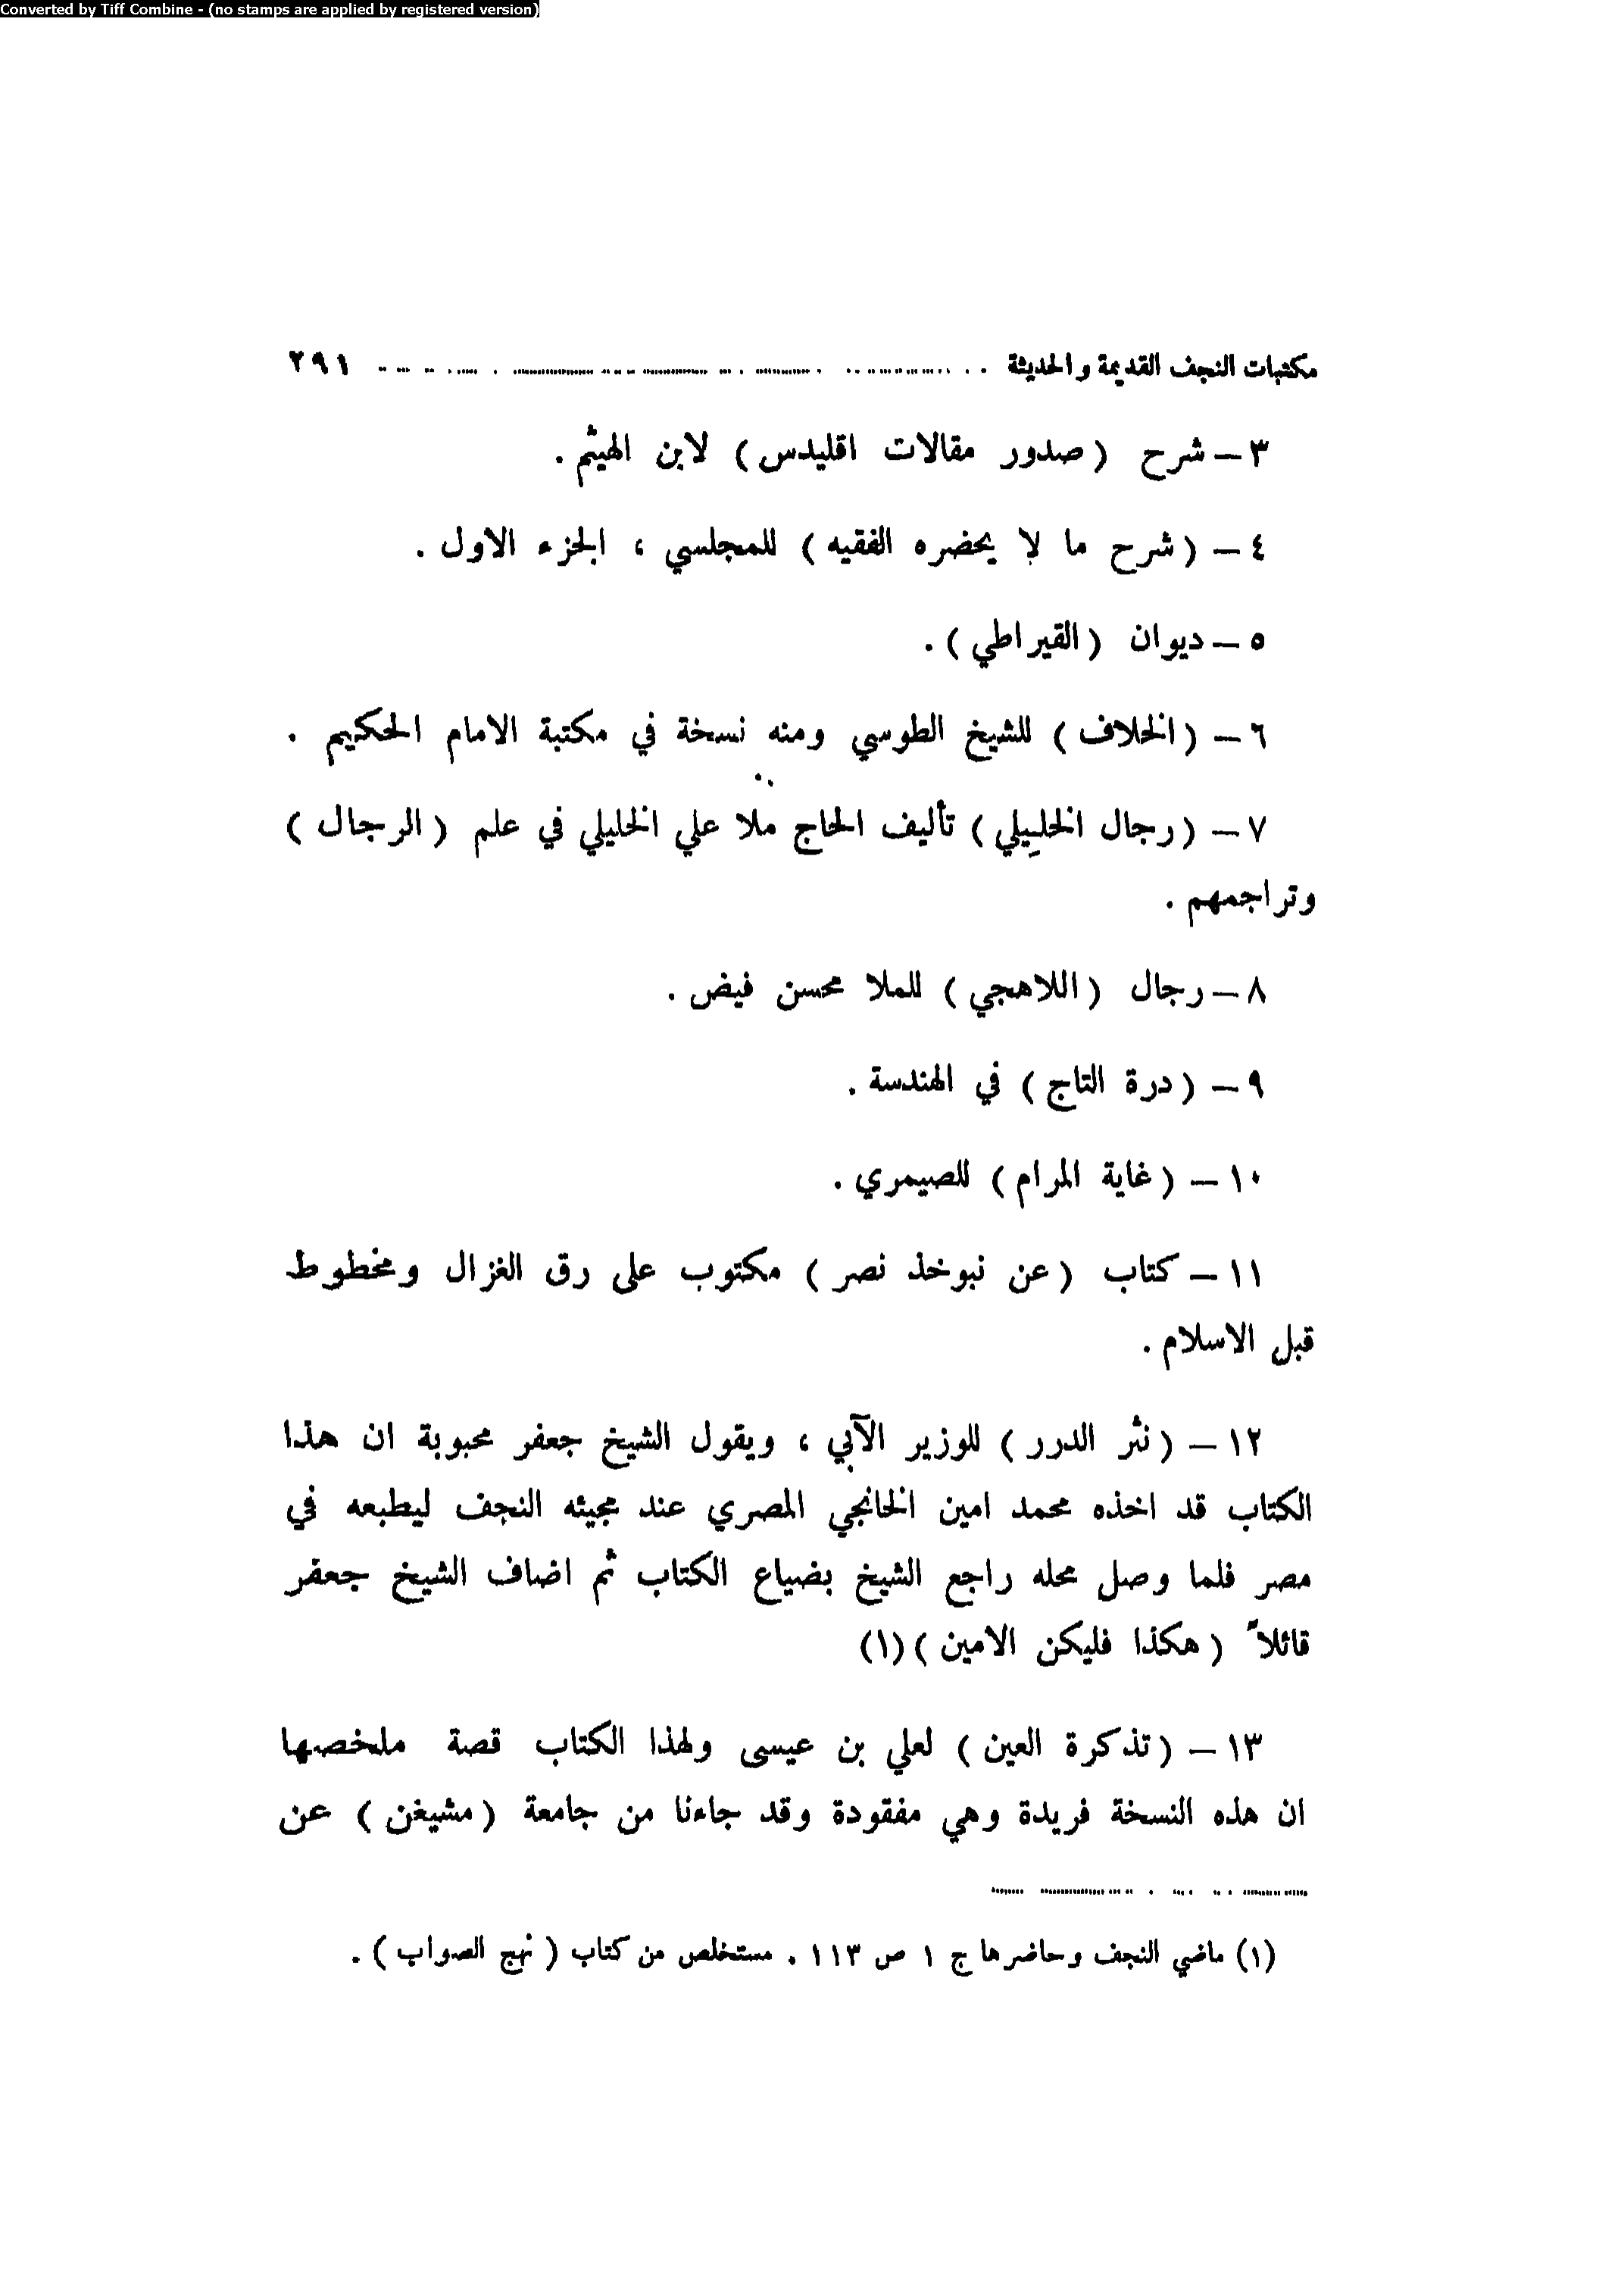 Converted by Tiff Combine - (no stamps are applied by registered version)
مكتبات النجف القديمة والحديثة ................................ ٢٩١
٣ – شرح ( صدور مقالات اقليدس ) لابن الهيثم .
٤ – ( شرح ما لا يحضره الفقيه ) للمجلسي ، الجزء الاول .
٥ – ديوان ( القيراطي ) .
٦ – ( الخلاف ) للشيخ الطوسي ومنه نسخة في مكتبة الامام الحكيم .
٧ – ( رجال الخليلي ) تأليف الحاج ملا علي الخليلي في علم ( الرجال )
وتراجمهم .
٨ – رجال ( اللاهجي ) للملا محسن فيض .
٩ – ( درة التاج ) في الهندسة .
١٠ – ( غاية المرام ) للصيمري .
١١ – كتاب ( عن نبوخذ نصر ) مكتوب على رق الغزال ومخطوط
قبل الاسلام .
١٢ – ( نثر الدرر ) للوزير الآبي ، ويقول الشيخ جعفر محبوبة ان هذا
الكتاب قد اخذه محمد امين الخانجي المصري عند مجيئه النجف ليطبعه في
مصر فلما وصل محله راجع الشيخ بضياع الكتاب ثم اضاف الشيخ جعفر
قائلاً ( هكذا فليكن الامين ) (١)
١٣ – ( تذكرة العين ) لعلي بن عيسى ولهذا الكتاب قصة ملخصها
ان هذه النسخة فريدة وهي مفقودة وقد جاءنا من جامعة ( مشيغن ) عن
(١) ماضي النجف وحاضرها ج ١ ص ١١٣ . مستخلص من كتاب ( نهج الصواب ) .